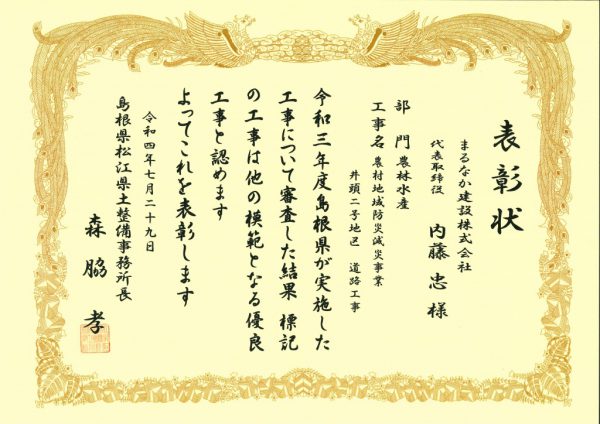 表彰状
まるなか建設株式会社
代表取締役 内藤忠様
部門 農林水産
工事名 農村地域防災減災事業
井頭二号地区 道路工事
令和三年度島根県が実施した
工事について審査した結果 標記
の工事は他の模範となる優良
工事と認めます
よってこれを表彰します
令和四年七月二十九日
島根県松江県土整備事務所長
森脇孝